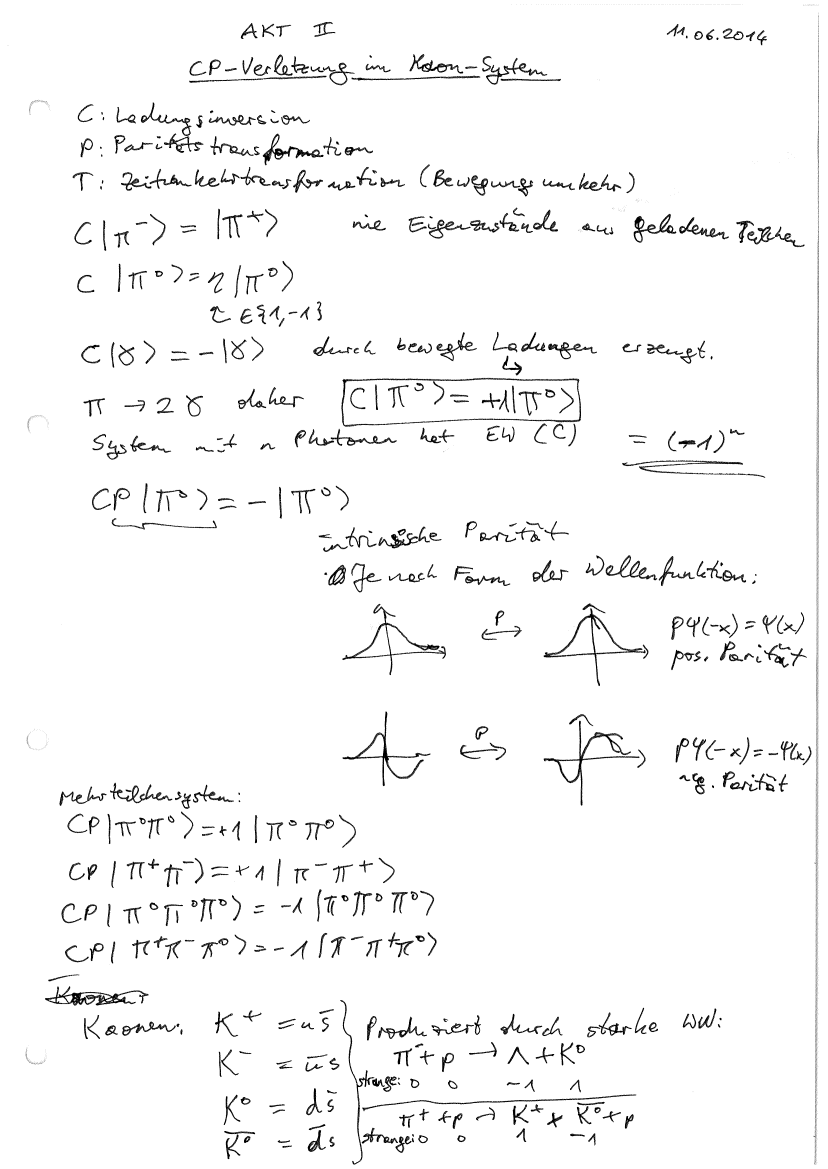 AKT II 11.06.2014
CP-Verletzung im Kaon-System
C: Ladungsinversion
P: Paritätstransformation
T: Zeitumkehrtransformation (Bewegungsumkehr)
C|π⁻⟩ = |π⁺⟩ nie Eigenzustände aus geladenen Teilchen
C |π⁰⟩ = η|π⁰⟩
↳ ∈{1,-1}
C|γ⟩ = -|γ⟩ durch bewegte Ladungen erzeugt.
π → 2γ daher C|π⁰⟩ = +1|π⁰⟩
System mit n Photonen hat EW (C) = (-1)ⁿ
CP|π⁰⟩ = -|π⁰⟩
intrinsische Parität
Je nach Form der Wellenfunktion:
P PΨ(-x) = Ψ(x)
pos. Parität
P PΨ(-x) = -Ψ(x)
neg. Parität
Mehrteilchensystem:
CP|π⁰π⁰⟩ = +1 |π⁰π⁰⟩
CP|π⁺π⁻⟩ = +1 |π⁻π⁺⟩
CP|π⁰π⁰π⁰⟩ = -1 |π⁰π⁰π⁰⟩
CP|π⁺π⁻π⁰⟩ = -1 |π⁻π⁺π⁰⟩
Kaonen: K⁺ = us̄ Produziert durch starke WW:
K⁻ = ūs π⁻+p → Λ+K⁰
strange: 0 0 -1 1
K⁰ = ds̄ π⁺+p → K⁺+K̄⁰+p
K̄⁰ = d̄s strange: 0 0 1 -1